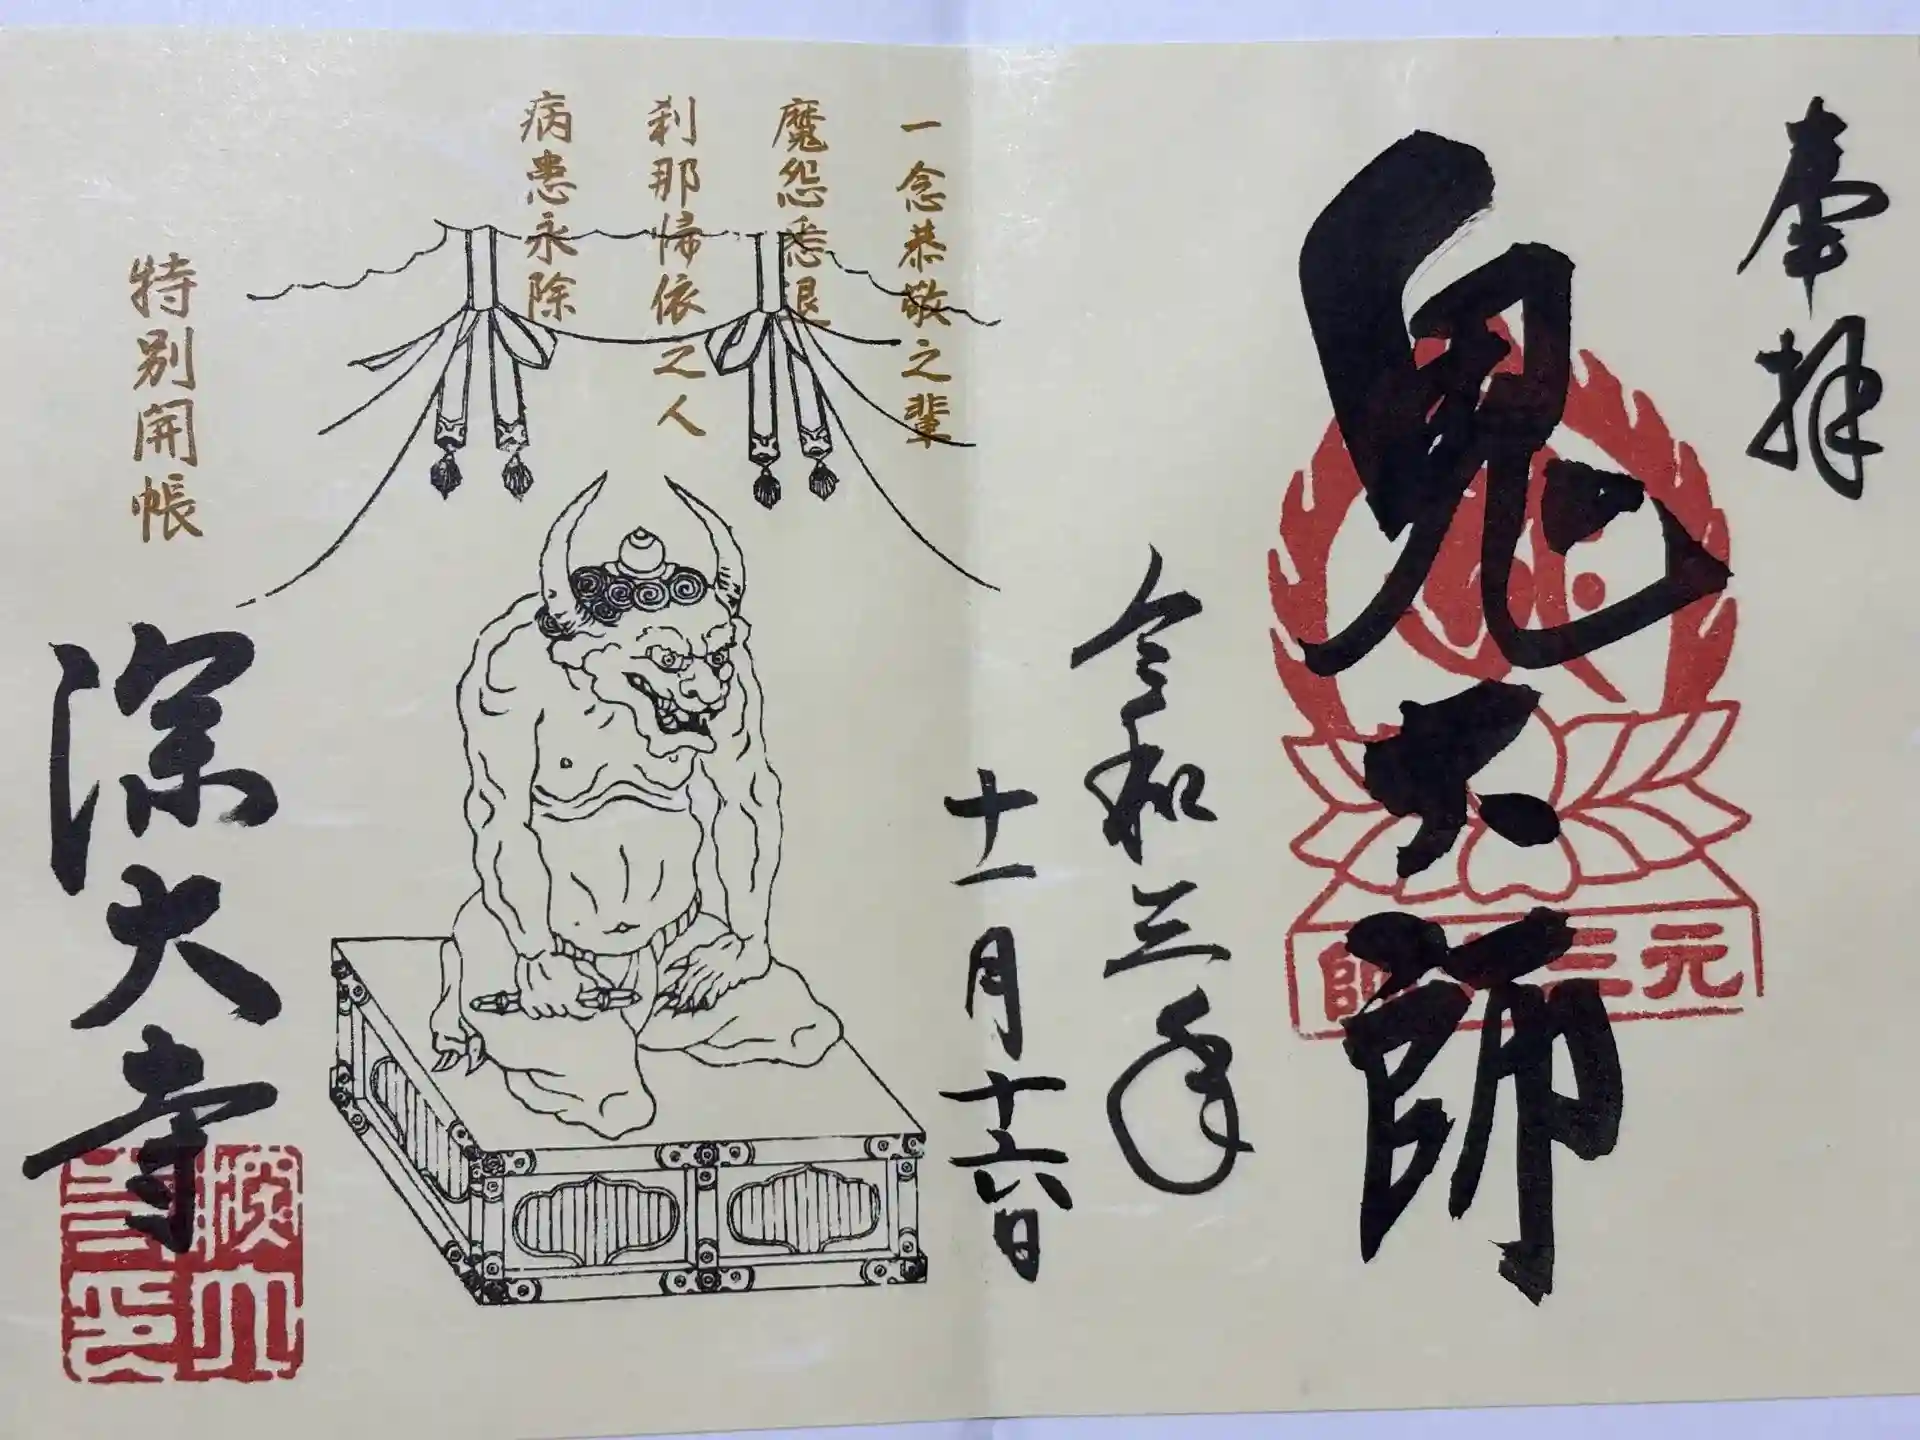 奉拝
鬼大師
元三大師
令和三年
十一月十六日
一念恭敬之輩
魔怨悉退
刹那帰依之人
病患永除
特別開帳
深大寺
深大寺印